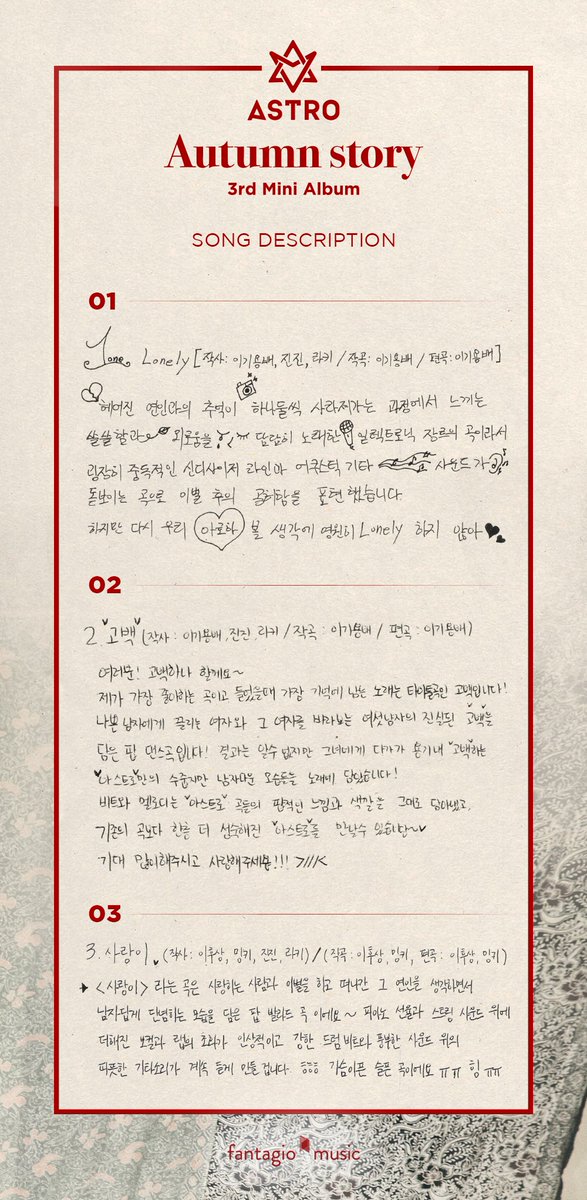 ASTRO
Autumn story
3rd Mini Album
SONG DESCRIPTION
01
1one Lonely [작사: 이기용배, 진진, 라키 / 작곡: 이기용배 / 편곡: 이기용배]
헤어진 연인과의 추억이 하나둘씩 사라져가는 과정에서 느끼는
쓸쓸함과 외로움을 담담히 노래한 일렉트로닉 장르의 곡이라서
굉장히 중독적인 신디사이저 라인과 어쿠스틱 기타 사운드가
돋보이는 곡으로 이별 후의 공허함을 표현했습니다
하지만 다시 우리 아로하 볼 생각에 영원히 Lonely 하지 않아
02
2. "고백" (작사: 이기용배, 진진, 라키 / 작곡: 이기용배 / 편곡: 이기용배)
여러분! 고백하나 할게요~
제가 가장 좋아하는 곡이고 들었을때 가장 기억에 남는 노래는 타이틀곡인 고백입니다!
나쁜 남자에게 끌리는 여자와 그 여자를 바라보는 남자의 진실된 고백을
담은 팝 댄스곡입니다! 결과는 알수 없지만 그녀에게 다가가 용기내 "고백"하는
"아스트로"만의 수줍지만 남자다운 모습들을 노래에 담았습니다!
비트와 멜로디는 "아스트로" 곡들의 팝적인 느낌과 색깔을 그대로 담아냈고,
기존의 곡보다 한층 더 성숙해진 "아스트로"를 만날수 있습니다~
기대 많이해주시고 사랑해주세용!!! >///<
03
3. 사랑이, (작사: 이후상, 밍키, 진진, 라키) / (작곡: 이후상, 밍키, 편곡: 이후상, 밍키)
<사랑이> 라는 곡은 사랑하는 사람과 이별을 하고 떠나간 그 연인을 생각하면서
남자답게 단념하는 모습을 담은 팝 발라드 곡 이에요~ 피아노 선율과 스트링 사운드 위에
더해진 보컬과 랩의 조화가 인상적이고 강한 드럼 비트와 풍부한 사운드 위의
따뜻한 기타소리가 계속 듣게 만들 겁니다. 흥흥흥 가슴아픈 슬픈 곡이에요 ㅠㅠ 힝 ㅠㅠ
fantagio music